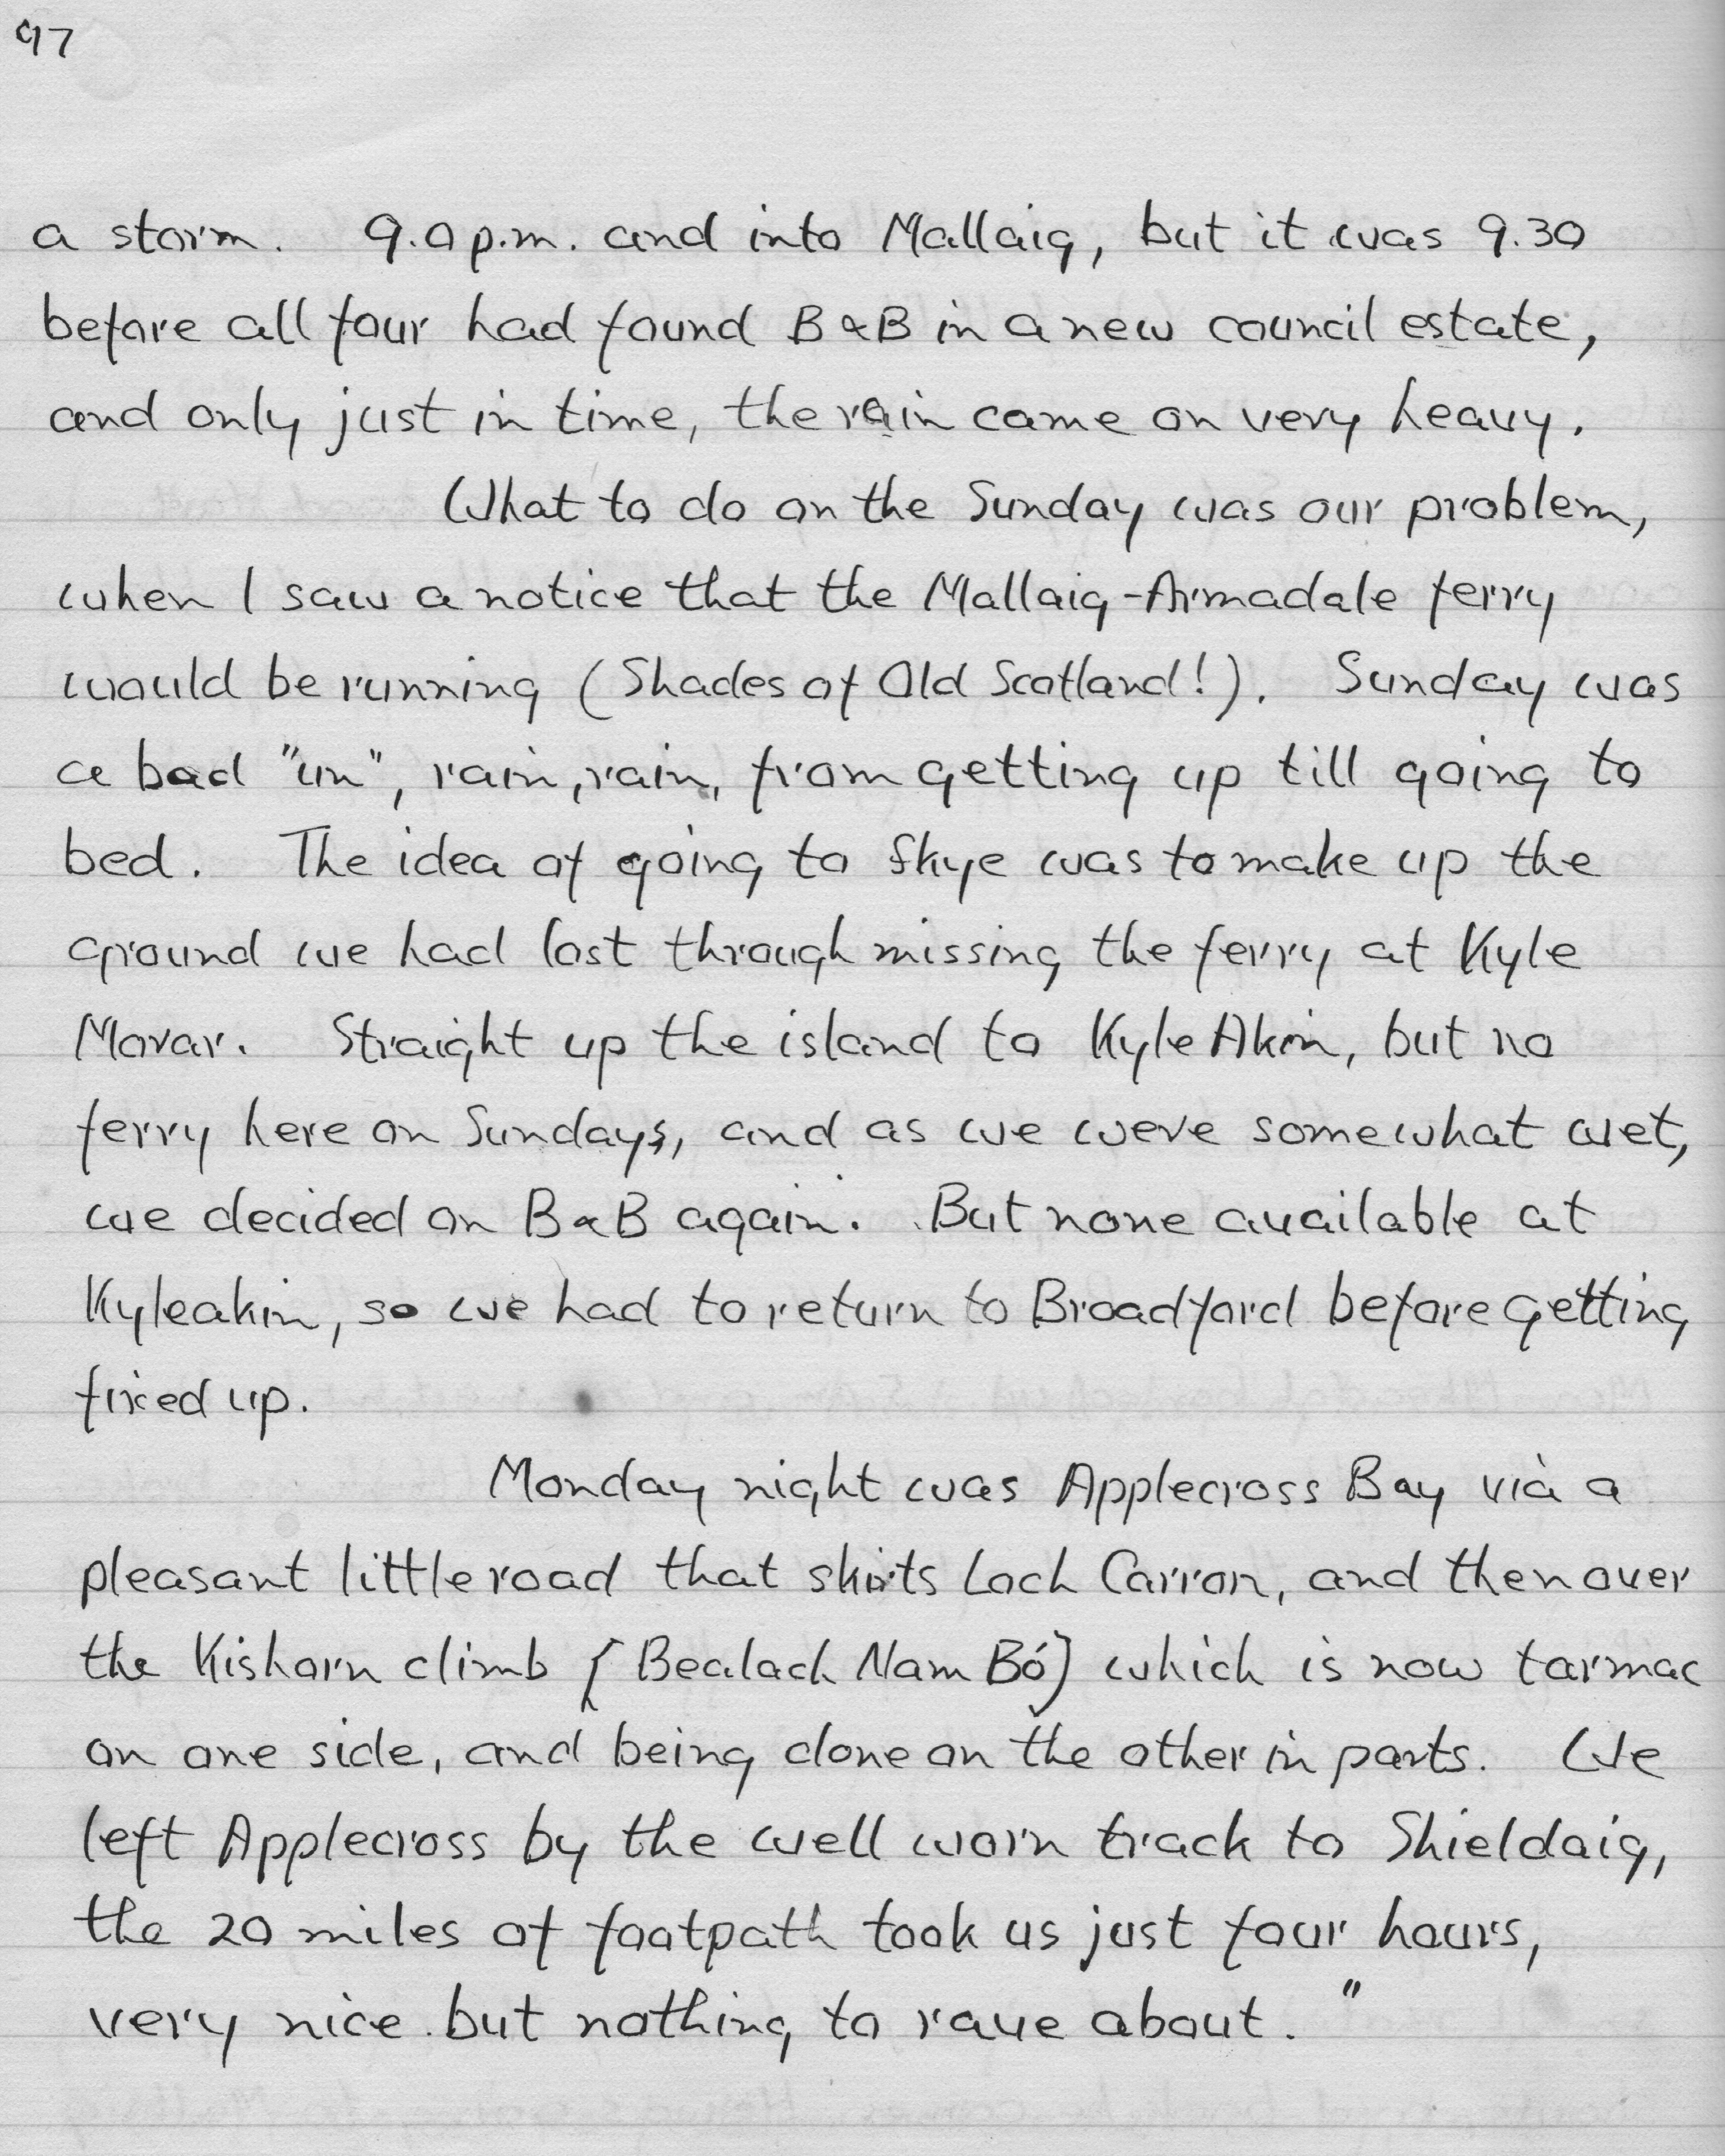 97
a storm. 9.0 p.m. and into Mallaig, but it was 9.30
before all four had found B & B in a new council estate,
and only just in time, the rain came on very heavy.
What to do on the Sunday was our problem,
when I saw a notice that the Mallaig-Armadale ferry
would be running (Shades of Old Scotland!). Sunday was
a bad "un", rain, rain, from getting up till going to
bed. The idea of going to Skye was to make up the
ground we had lost through missing the ferry at Kyle
Morar. Straight up the island to Kyle Akin, but no
ferry here on Sundays, and as we were somewhat wet,
we decided on B & B again. But none available at
Kyleakin, so we had to return to Broadford before getting
fixed up.
Monday night was Applecross Bay via a
pleasant little road that skirts Loch Carron, and then over
the Kishorn climb [Bealach Nam Bó] which is now tarmac
on one side, and being done on the other in parts. We
left Applecross by the well worn track to Shieldaig,
the 20 miles of footpath took us just four hours,
very nice but nothing to rave about."